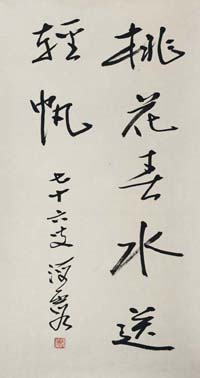 桃花春水送
輕帆
七十六叟